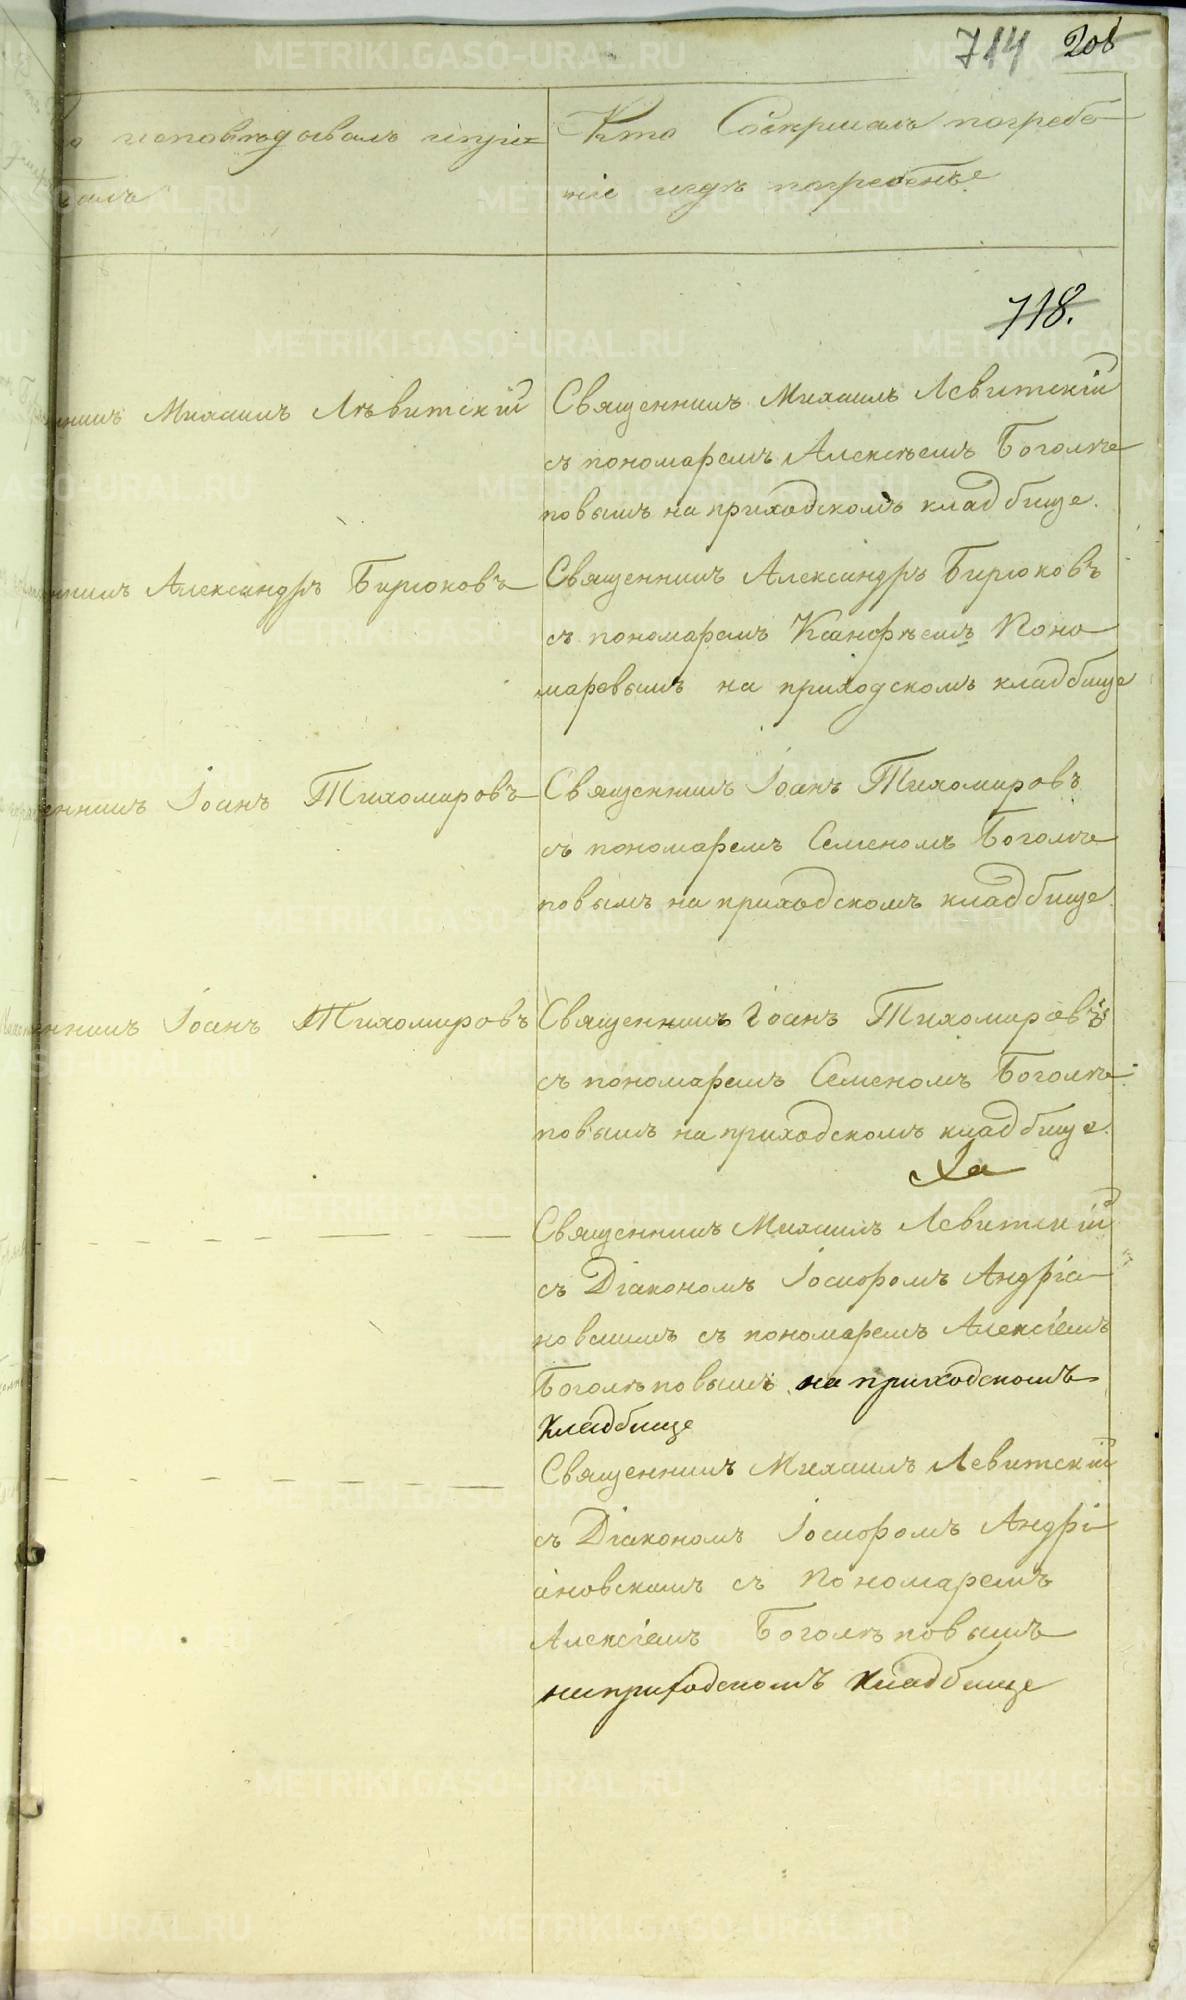 714 208
о исповѣдовалъ ипріе=
балъ
Кто Совершалъ погребе-
ніе игдѣ погребенъ.
718.
нникъ Михаилъ Лѣвитскій
Священникъ Михаилъ Левитскій
съ пономаремъ Алексѣемъ Боголѣ-
повымъ на приходскомъ кладбище.
нникъ Александръ Бирюковъ
Священникъ Александръ Бирюковъ
съ пономаремъ Ксанфѣемъ Поно-
маревымъ на приходскомъ кладбище
енникъ Іоанъ Тихомировъ
Священникъ Іоанъ Тихомировъ
съ пономаремъ Семеномъ Боголѣ-
повымъ на приходскомъ кладбище.
нникъ Іоанъ Тихомировъ
Священникъ Іоанъ Тихомировъ
съ пономаремъ Семеномъ Боголѣ-
повымъ на приходскомъ кладбище.
Священникъ Михаилъ Левитскій
съ Діакономъ Іосифомъ Андріа-
новскимъ съ пономаремъ Алексіемъ
Боголѣповымъ на приходскомъ
кладбище
Священникъ Михаилъ Левитскій
съ Діакономъ Іосифомъ Андрі-
ановскимъ съ Пономаремъ
Алексіемъ Боголѣповымъ
на приходскомъ кладбище
METRIKI.GASO-URAL.RU